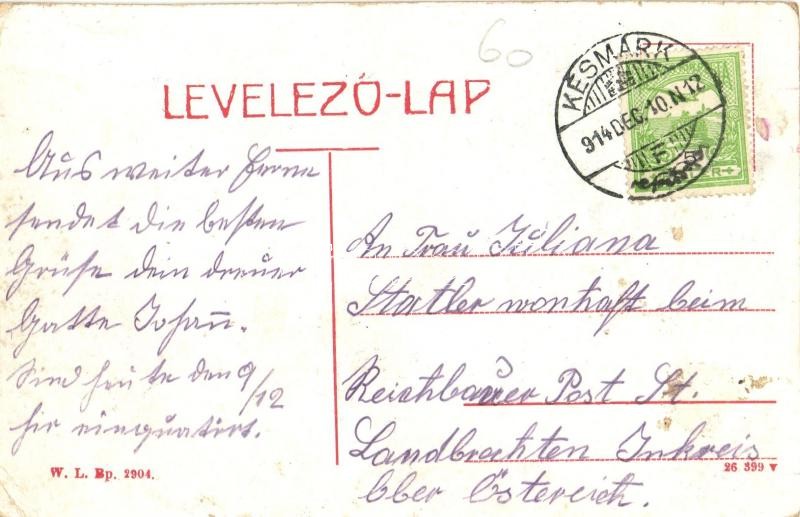 60
LEVELEZŐ-LAP
KÉSMÁRK
914 DEC. 10. N 12
Aus weiter Ferne
sendet die besten
Grüse dein dreuer
Gatte Johann.
Sind heute den 9/12
hir einquatirt.
An Frau Juliana
Statler wonhaft beim
Reichbauer Post St.
Landbrachten Inkreis
Ober Östereich.
W. L. Bp. 2904.
26 399